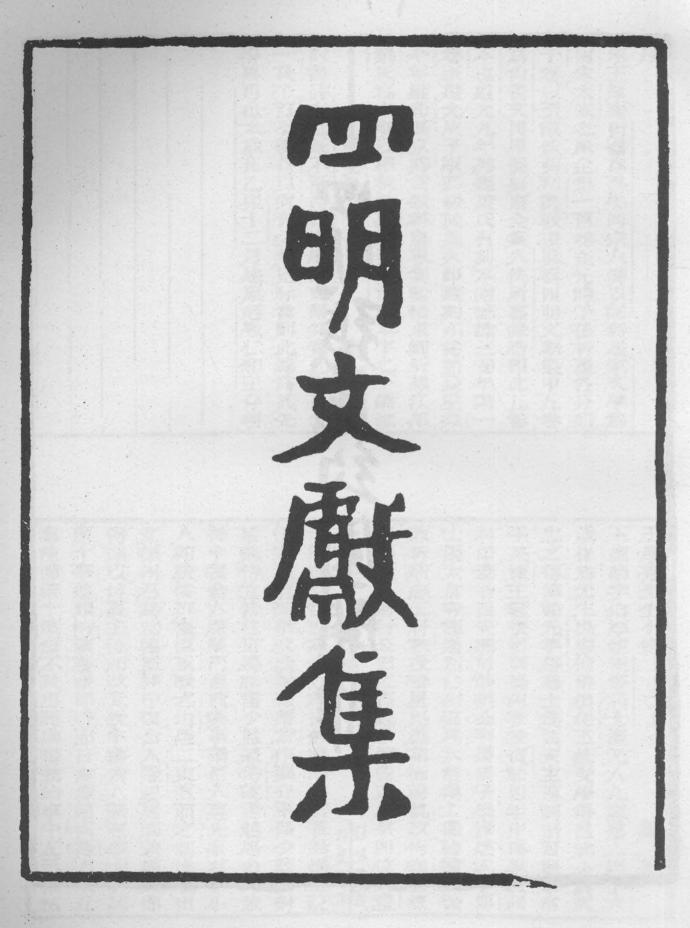 四明文獻集